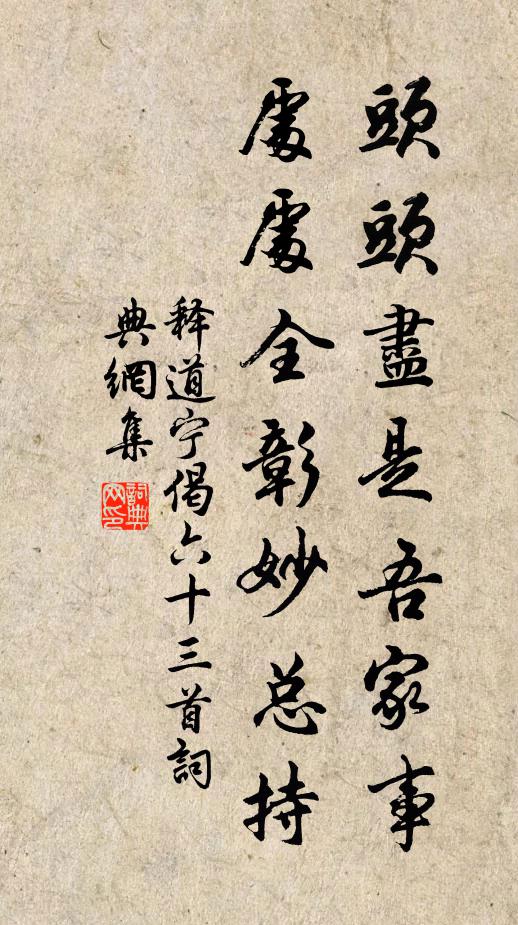 頭頭盡是吾家事
處處全彰妙总持
释道宁偈六十三首詞
典網集
詞典
网印